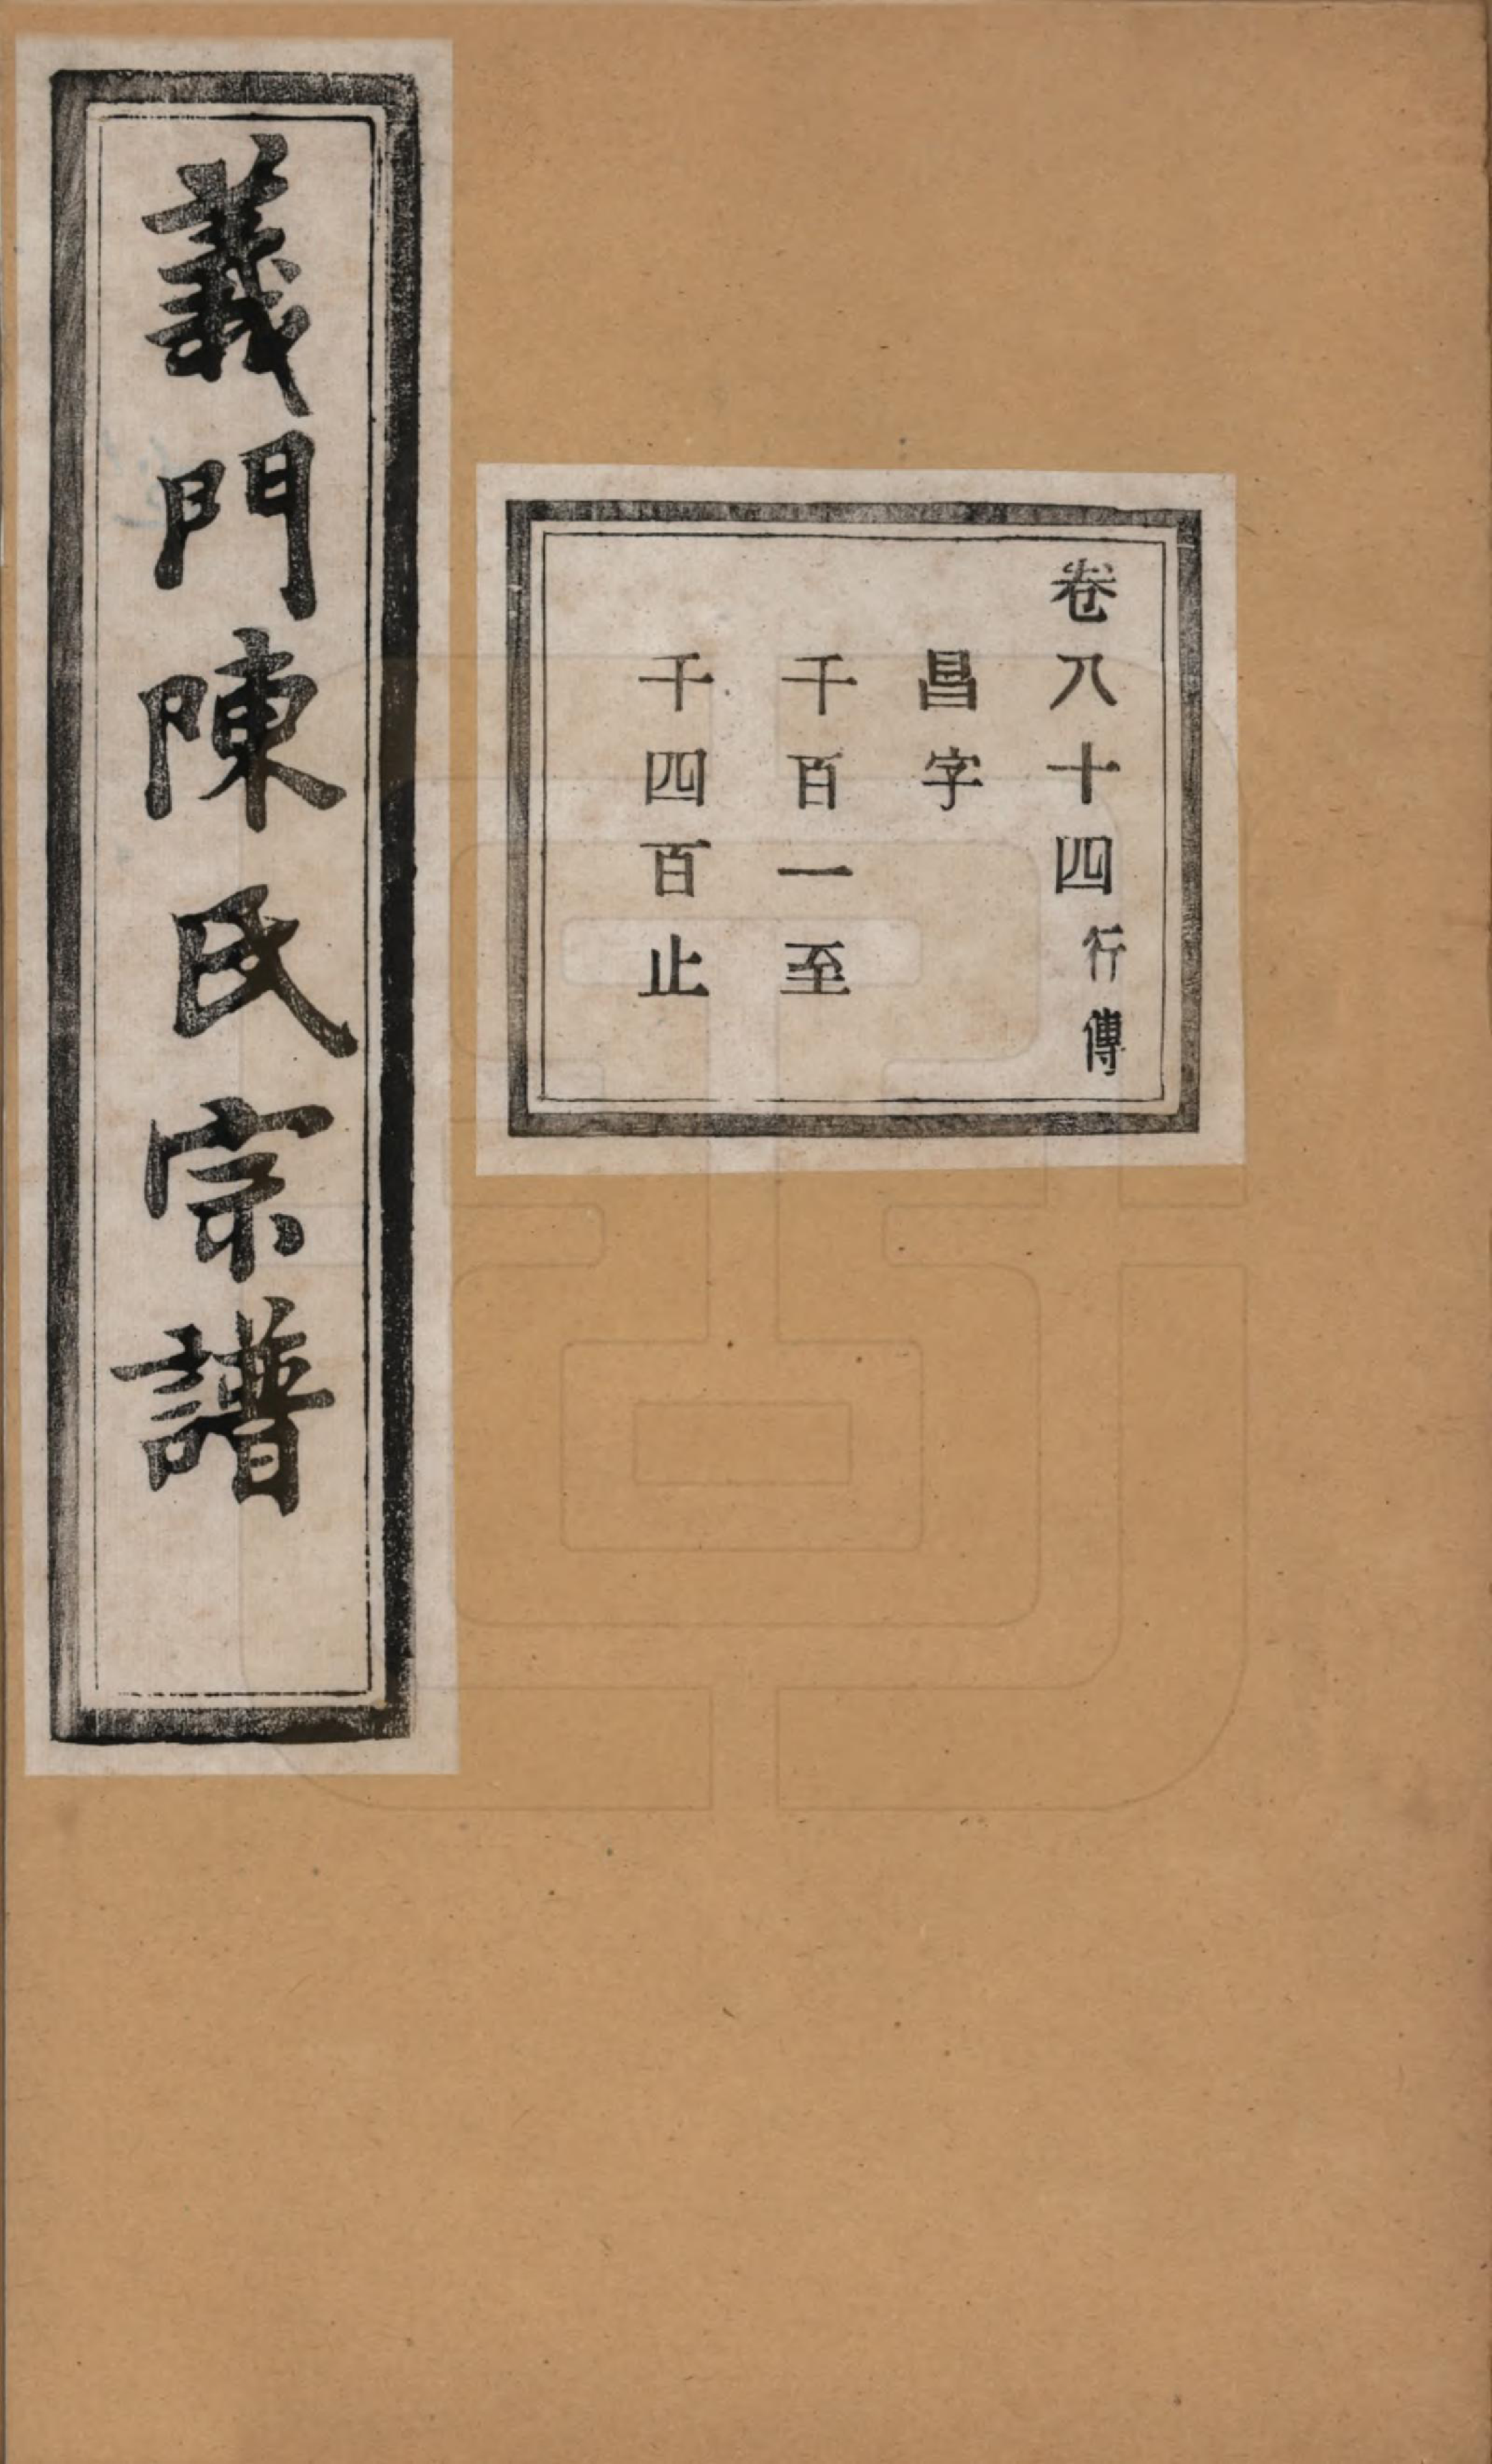 義門陳氏宗譜
卷八十四行傳
昌字
千百一至
千四百止